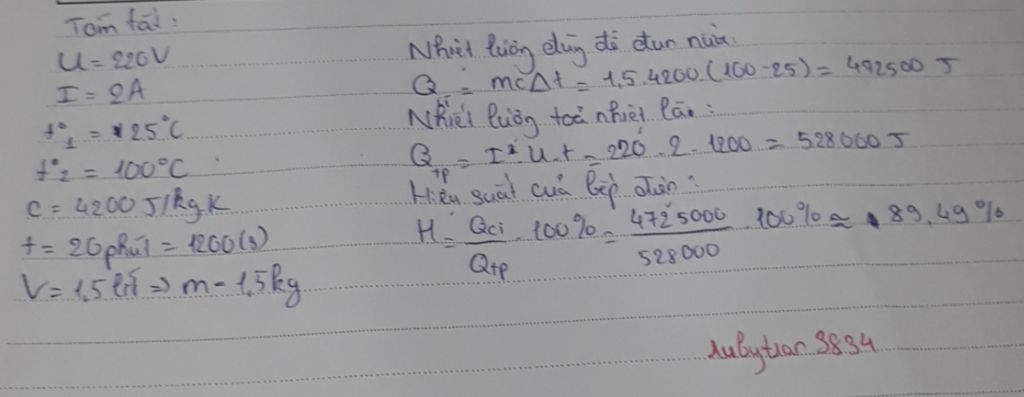 Tóm tắt:
U = 220V
I = 2A
t°₁ = 25°C
t°₂ = 100°C
c = 4200 J/kgK
t = 20 phút = 1200(s)
V = 1,5 lít => m = 1,5kg
Nhiệt lượng dùng để đun nước:
Q = mcΔt = 1,5.4200.(100-25) = 492500 J
Nhiệt lượng toả nhiệt
Qtp = I U.t = 220.2.1200 = 528000 J
Hiệu suất của bếp điện:
H = Qci/Qtp .100% = 4725000/528000 .100% ≈ 89,49%
rubytran 3834